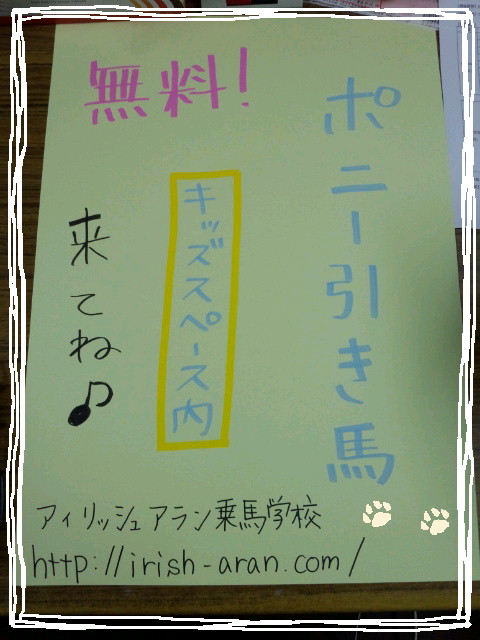 無料!
ポニー引き馬
キッズスペース内
来てね♪
アイリッシュアラン乗馬学校
http://irish-aran.com/